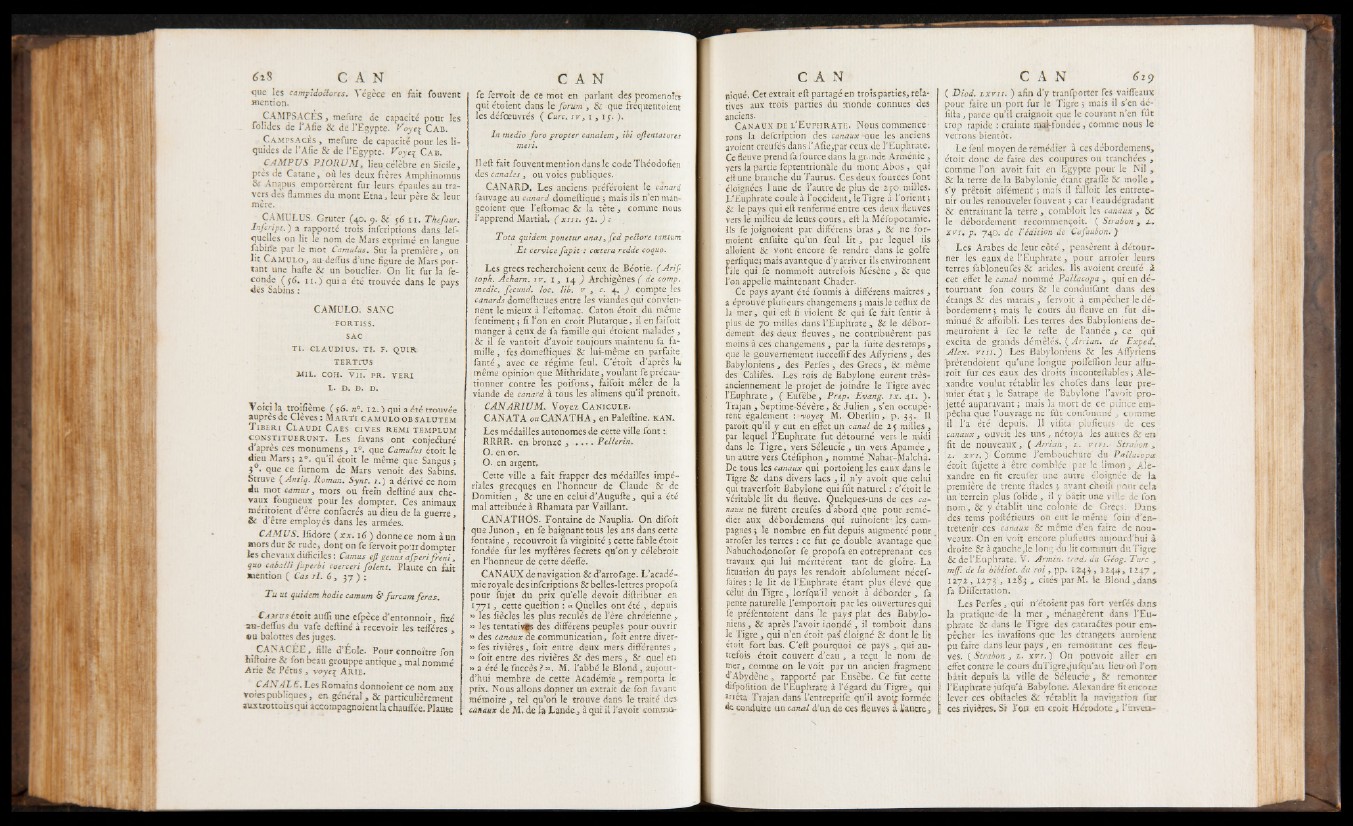 628 C A N
que les campidoctores. Végèce en fait souvent
mention.
CAMPSACÈS, mesure de capacité pour les
solides de l'Asie & de l'Egypte. Voyez CAB.
CAMPSACÈS, mesure de capacité pour les li-
quides de l'Asie & de l'Egypte. Voyez CAB.
CAMPUS PIORUM, lieu célèbre en Sicile,
près de Catane, où les deux frères Amphinomus
& Anapus emportèrent sur leurs épaules au tra-
vers des flammes du mont Etna, leur père & leur
mère.
CAMULUS. Gruter (40. 9. & 56 11. Thesaur.
Inscript.) a rapporté trois inscriptions dans les-
quelles on lit le nom de Mars exprimé en langue
sabine par le mot Camulus. Sur la première, on
lit CAMULO, au-dessus d'une figure de Mars por-
tant une haste & un bouclier. On lit sur la se-
conde (56. 11.) qui a été trouvée dans le pays
des Sabins:
CAMULO. SANC
FORTISS.
SAC
TI. CLAUDIUS. TI. F. QUIR.
TERTIUS
MIL. COH. VII. PR. VERI
L. D. D. D.
Voici la troisième (56. n°. 12.) qui a été trouvée
auprès de Clèves: MARTI CAMULO OB SALUTEM
TIBERI CLAUDI CAES CIVES REMI TEMPLUM
CONSTITUERUNT. Les savans ont conjecturé
d'après ces monumens, 1°. que Camulus étoit le
dieu Mars; 2°. qu'il étoit le même que Sangus;
3°. que ce surnom de Mars venoit des Sabins.
Struve (Antiq. Roman. Synt. 1.) a dérivé ce nom
du mot camus, mors ou frein destiné aux che-
vaux fougueux pour les dompter. Ces animaux
méritoient d'être consacrés au dieu de la guerre,
& d'être employés dans les armées.
CAMUS. Isidore (xx. 16) donne ce nom à un
mors dur & rude, dont on se servoit pour dompter
les chevaux difficiles: Camus est genus asperi freni,
quo caballi superbi coerceri solent. Plaute en fait
mention (Cas. II. 6, 37):
Tu ut quidem hodie camum & furcam feras.
CAMUS étoit aussi une espèce d'entonnoir, fixé
au-dessus du vase destiné à recevoir les tessères,
ou balottes des juges.
CANACÉE, fille d'Éole. Pour connoître son
histoire & son beau grouppe antique, mal nommé
Arie & Pétus, voyez ARIE.
CANALE. Les Romains donnoient ce nom aux
voies publiques, en général, & particulièrement
aux trottoirs qui accompagnoient la chaussée. Plaute
C A N
se servoit de ce mot en parlant des promenoirs
qui étoient dans le forum, & que fréquentoient
les désœuvrés (Curc. IV, 1, 15.).
In medio foro propter canalem, ibi ostentatores
meri.
Il est fait souvent mention dans le code Théodosien
des canales, ou voies publiques.
CANARD. Les anciens préféroient le canard
sauvage au canard domestique; mais ils n'en man-
geoient que l'estomac & la tête, comme nous
l'apprend Martial. (XIII. 52.):
Tota quidem ponetur anas, sed pectore tantum
Et cervice sapit: cætera redde coquo.
Les grecs recherchoient ceux de Béotie. (Aris-
toph. Acharn. IV. 1, 14) Archigènes (de comp.
medic. secund. loc. lib. V, c. 4.) compte les
canards domestiques entre les viandes qui convien-
nent le mieux à l'estomac. Caton étoit du même
sentiment; si l'on en croit Plutarque, il en faisoit
manger à ceux de sa famille qui étoient malades,
& il se vantoit d'avoir toujours maintenu sa fa-
mille, ses domestiques & lui-même en parfaite
santé, avec ce régime seul. C'étoit d'après la
même opinion que Mithridate, voulant se précau-
tionner contre les poisons, faisoit mêler de la
viande de canard à tous les alimens qu'il prenoit.
CANARIUM. Voyez CANICULE.
CANATA ou CANATHA, en Palestine. KAN.
Les médailles autonomes de cette ville sont:
RRRR. en bronze, .... Pellerin.
O. en or.
O. en argent.
Cette ville a fait frapper des médailles impé-
riales grecques en l'honneur de Claude & de
Domitien, & une en celui d'Auguste, qui a été
mal attribuée à Rhamata par Vaillant.
CANATHOS. Fontaine de Nauplia. On disoit
que Junon, en se baignant tous les ans dans cette
fontaine, recouvroit sa virginité; cette fable étoit
fondée sur les mystères secrets qu'on y célébroit
en l'honneur de cette déesse.
CANAUX de navigation & d'arrosage. L'acadé-
mie royale des inscriptions & belles-lettres proposa
pour sujet du prix qu'elle devoit distribuer en
1771, cette question: « Quelles ont été, depuis
» les siècles les plus reculés de l'ère chrétienne,
» les tentatives des différens peuples pour ouvrir
» des canaux de communication, soit entre diver-
» ses rivières, soit entre deux mers différentes,
» soit entre des rivières & des mers, & quel en
» a été le succès? ». M. l'abbé le Blond, aujour-
d'hui membre de cette Académie, remporta le
prix. Nous allons donner un extrait de son savant
mémoire, tel qu'on le trouve dans le traité des
canaux de M. de la Lande, à qui il l'avoit commu-
C A N
niqué. Cet extrait est partagé en trois parties, rela-
tives aux trois parties du monde connues des
anciens.
CANAUX DE L'EUPHRATE. Nous commence-
rons la description des canaux que les anciens
avoient creusés dans l'Asie, par ceux de l'Euphrate.
Ce fleuve prend sa source dans la grande Arménie,
vers la partie septentrionale du mont Abos, qui
est une branche du Taurus. Ces deux sources sont
éloignées l'une de l'autre de plus de 250 milles.
L'Euphrate coule à l'occident, le Tigre à l'orient;
& le pays qui est renfermé entre ces deux fleuves
vers le milieu de leurs cours, est la Mésopotamie.
Ils se joignoient par différens bras, & ne for-
moient ensuite qu'un seul lit, par lequel ils
alloient & vont encore se rendre dans le golfe
persique; mais avant que d'y arriver ils environnent
l'île qui se nommoit autrefois Mesène, & que
l'on appelle maintenant Chader.
Ce pays ayant été soumis à différens maîtres,
a éprouvé plusieurs changemens; mais le reflux de
la mer, qui est si violent & qui se fait sentir à
plus de 70 milles dans l'Euphrate, & le débor-
dement des deux fleuves, ne contribuèrent pas
moins à ces changemens, par la suite des temps,
que le gouvernement successif des Assyriens, des
Babyloniens, des Perses, des Grecs, & même
des Califes. Les rois de Babylone eurent très-
anciennement le projet de joindre le Tigre avec
l'Euphrate, (Eusèbe, Prep. Evang. IX. 41.).
Trajan, Septime-Sévère, & Julien, s'en occupè-
rent également: voyez M. Oberlin, p. 33. Il
paroît qu'il y eut en effet un canal de 25 milles,
par lequel l'Euphrate fut détourné vers le midi
dans le Tigre, vers Séleucie, un vers Apamée,
un autre vers Ctésiphon, nommé Nahar-Malcha.
De tous les canaux qui portoient les eaux dans le
Tigre & dans divers lacs, il n'y avoit que celui
qui traversoit Babylone qui fût naturel: c'étoit le
véritable lit du fleuve. Quelques-uns de ces ca-
naux ne furent creusés d'abord que pour remé-
dier aux débordemens qui ruinoient les cam-
pagnes; le nombre en fut depuis augmenté pour
arroser les terres: ce fut ce double avantage que
Nabuchodonosor se proposa en entreprenant ces
travaux qui lui méritèrent tant de gloire. La
situation du pays les rendoit absolument néces-
saires: le lit de l'Euphrate étant plus élevé que
celui du Tigre, lorsqu'il venoit à déborder, sa
pente naturelle l'emportoit par les ouvertures qui
se présentoient dans le pays plat des Babylo-
niens, & après l'avoir inondé, il tomboit dans
le Tigre, qui n'en étoit pas éloigné & dont le lit
étoit fort bas. C'est pourquoi ce pays, qui au-
trefois étoit couvert d'eau, a reçu le nom de
mer, comme on le voit par un ancien fragment
d'Abydène, rapporté par Eusèbe. Ce fut cette
disposition de l'Euphrate à l'égard du Tigre, qui
arrêta Trajan dans l'entreprise qu'il avoit formée
de conduire un canal d'un de ces fleuves à l'autre,
C A N 629
(Diod. LXVII.) afin d'y transporter ses vaisseaux
pour faire un port sur le Tigre; mais il s'en dé-
sista, parce qu'il craignoit que le courant n'en fût
trop rapide: crainte mal-fondée, comme nous le
verrons bientôt.
Le seul moyen de remédier à ces débordemens,
étoit donc de faire des coupures ou tranchées,
comme l'on avoit fait en Egypte pour le Nil,
& la terre de la Babylonie étant grasse & molle,
s'y prêtoit aisément; mais il falloit les entrete-
nir ou les renouveler souvent; car l'eau dégradant
& entraînant la terre, combloit les canaux, &
le débordement recommençoit. (Strabon, L.
XVI. p. 740. de l'édition de Casaubon.)
Les Arabes de leur côté, pensèrent à détour-
ner les eaux de l'Euphrate, pour arroser leurs
terres sabloneuses & arides. Ils avoient creusé à
cet effet le canal nommé Pallacopa, qui en dé-
tournant son cours & le conduisant dans des
étangs & des marais, servoit à empêcher le dé-
bordement; mais le cours du fleuve en fut di-
minué & affoibli. Les terres des Babyloniens de-
meuroient à sec le reste de l'année, ce qui
excita de grands démêlés. (Arrian. de Exped.
Alex. VIII.) Les Babyloniens & les Assyriens
prétendoient qu'une longue possession leur assu-
roit sur ces eaux des droits incontestables; Ale-
xandre voulut rétablir les choses dans leur pre-
mier état; le Satrape de Babylone l'avoit pro-
jetté auparavant; mais la mort de ce prince em-
pêcha que l'ouvrage ne fût consommé, comme
il l'a été depuis. Il visita plusieurs de ces
canaux, ouvrit les uns, nétoya les autres & en
fit de nouveaux, (Arrian, L. VIII. Strabon,
L. XVI.) Comme l'embouchure du Pallacopa
étoit sujette à être comblée par le limon, Ale-
xandre en fit creuser une autre éloignée de la
première de trente stades; ayant choisi pour cela
un terrein plus solide, il y bâtit une ville de son
nom, & y établit une colonie de Grecs. Dans
des tems postérieurs on eut le même soin d'en-
tretenir ces canaux & même d'en faire de nou-
veaux. On en voit encore plusieurs aujourd'hui à
droite & à gauche, le long du lit commun du Tigre
& de l'Euphrate. V. Armen. trad. du Géog. Turc,
mss. de la bibliot. du roi, pp. 1243, 1244, 1247,
1272, 1273, 1283, cités par M. le Blond, dans
sa Dissertation.
Les Perses, qui n'étoient pas fort versés dans
la pratique de la mer, ménagèrent dans l'Eu-
phrate & dans le Tigre des cataractes pour em-
pêcher les invasions que les étrangers auroient
pu faire dans leur pays, en remontant ces fleu-
ves. (Strabon, L. XVI.) On pouvoit aller en
effet contre le cours du Tigre, jusqu'au lieu où l'on
bâtit depuis la ville de Séleucie, & remonter
l'Euphrate jusqu'à Babylone. Alexandre fit encore
lever ces obstacles & rétablit la navigation sur
ces rivières. Si l'on en croit Hérodote, l'inven-